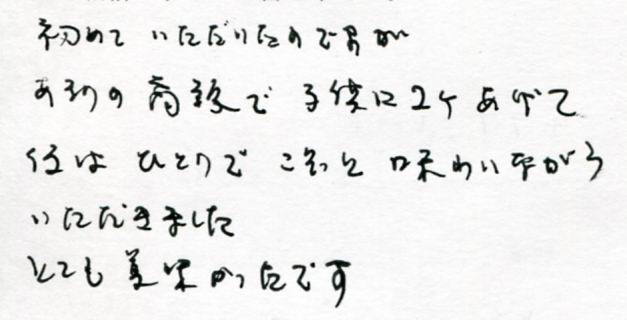 初めていただいたのですが
お初の商談で子供に2ケあげて
後はひとりでこそっと味わいながら
いただきました
とても美味かったです